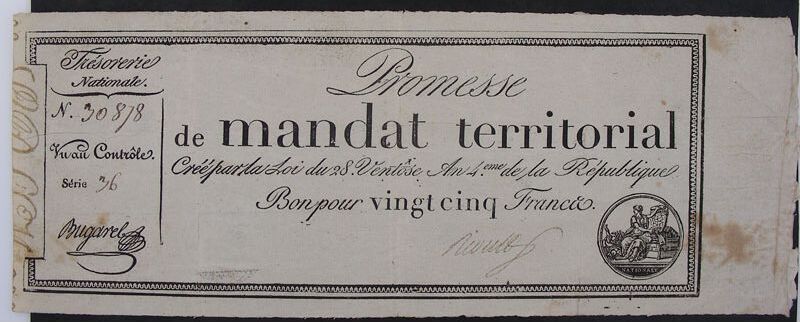 Trésorerie
Nationale.
N. 30878
Vu au Contrôle.
Série 36
Bugarel
Promesse
de mandat territorial
Créé par la Loi du 28. Ventôse An 4.eme de la République
Bon pour vingt cinq Francs.
NATIONALE